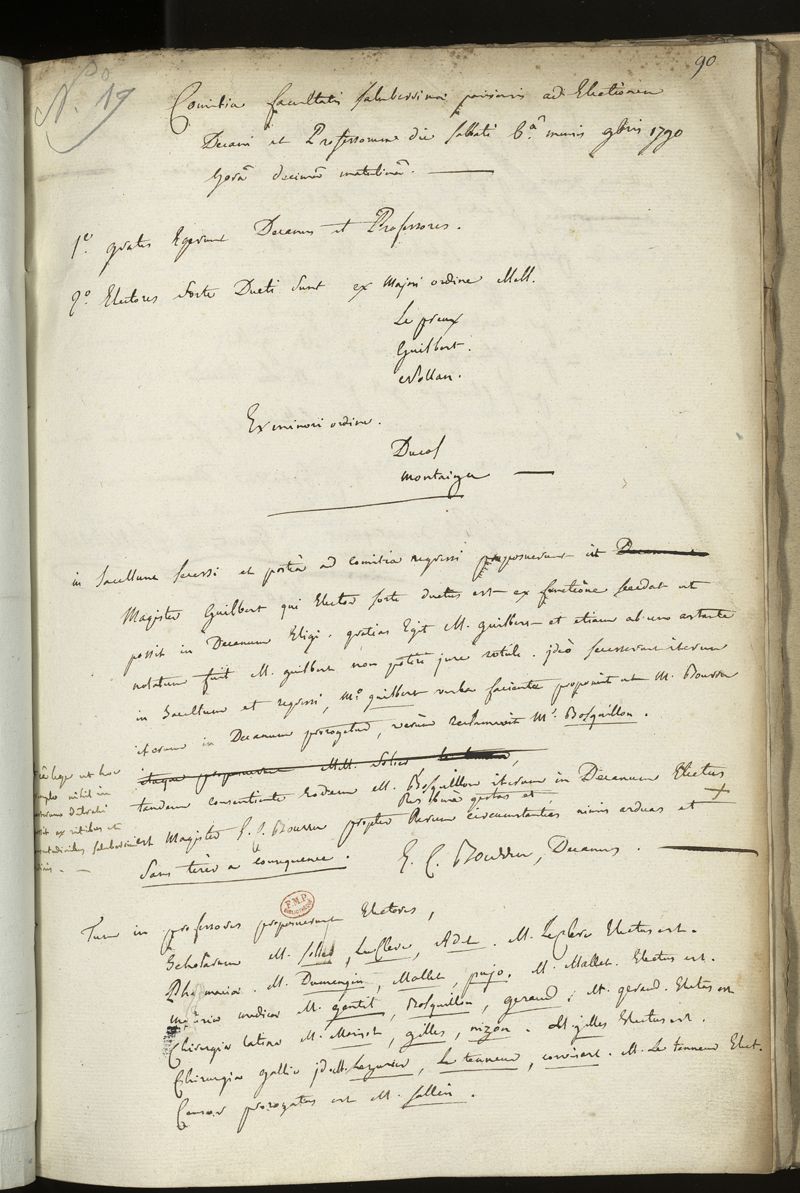 90
N.º 19
Comitia facultatis saluberrimæ parisiensis ad Electionem
Decani et Professorum die sabbati 6.ª mensis 9bris 1790
horâ decimâ matutinâ.
1º. grates Egerunt Decanus et Professores.
2º Electores sorte Ducti sunt ex Majori ordine MM.
Le preux
Guilbert.
Nollan.
Ex minori ordine.
Ducol
montaigu
in Sacellum secessi et posteà ad comitia regressi proposuerunt ut
Magister Guilbert qui Elector sorte ductus est ex functione secedat ut
possit in Decanum Eligi. gratias Egit M. guilbert et etiam ab uno astante
notatum fuit M. guilbert non potere jure rotuli. ideò secesserunt iterum
in Sacellum et regressi, Mº. guilbert verba faciente proponit ut M. Bourru
iterum in Decanum prorogetur, verùm reclamavit Mr. Bosquillon.
itaque proposuerunt MM. Solier
tandem consentiente Eodem M. Bosquillon iterum in Decanum Electus
Res bene gestas et
est Magister E. C. Bourru propter Rerum circumstantias nimis arduas et +
Sans tirer à consequence.
E. C. Bourru, Decanus.
eâ lege ut hoc
nihil in
ex ritibus et
Tum in professores proposuerunt Electores,
Scholarum M. Solier, Leclerc, Adet. M. Leclerc Electus est.
Pharmaciæ. M. Dumangin, Mallet, pujo. M. Mallet. Electus est.
materiæ medicæ M. gentil, Bosquillon, geraud; M. geraud. Electus est
Chirurgiæ latinæ M. Morisot, gilles, nizon. M. gilles Electus est.
Chirurgiæ gallicæ id. M. Lezurier, Le tenneur, corvisart. M. Le tenneur Elect.
Censor prorogatus est M. Sallin.
F.M.P.
BIBLIOTHÈQUE